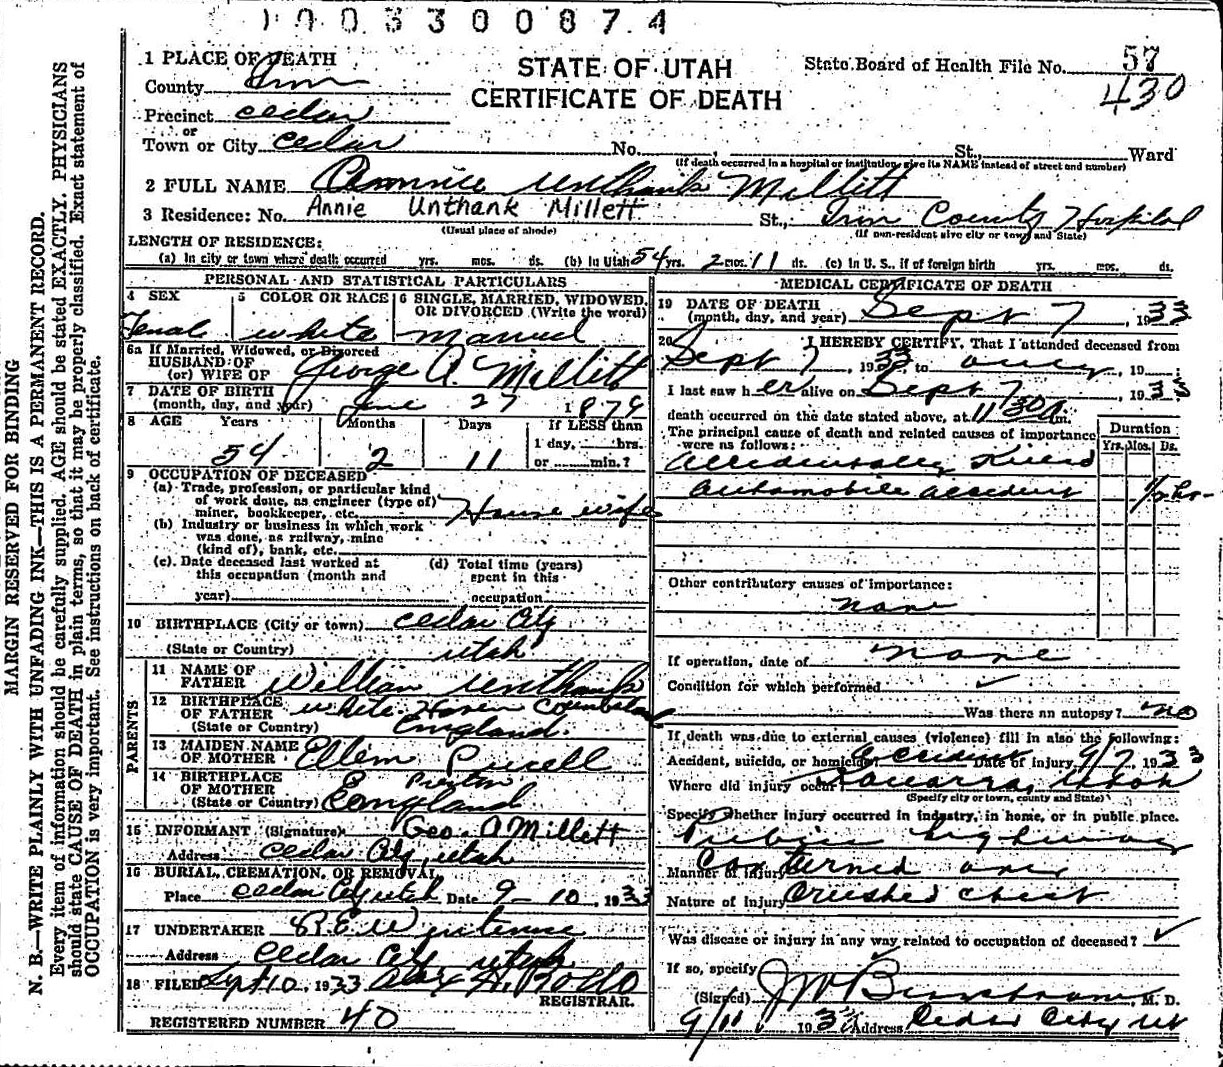 1003300874
1 PLACE OF DEATH
STATE OF UTAH
CERTIFICATE OF DEATH
State Board of Health File No. 57
430
County Iron
Precinct Cedar
or
Town or City Cedar No. , St., Ward
(If death occurred in a hospital or institution, give its NAME instead of street and number)
2 FULL NAME Unthank Millett
Annie Unthank Millett
3 Residence: No. St., Iron County Hospital
(Usual place of abode) (If non-resident give city or town and State)
LENGTH OF RESIDENCE:
(a) In city or town where death occurred yrs. mos. ds. (b) In Utah 54 yrs. 2 mos. 11 ds. (c) In U. S., if of foreign birth yrs. mos. ds.
PERSONAL AND STATISTICAL PARTICULARS
4 SEX 5 COLOR OR RACE 6 SINGLE, MARRIED, WIDOWED, OR DIVORCED (Write the word)
Femal white married
6a If Married, Widowed, or Divorced
HUSBAND OF
(or) WIFE OF George A. Millett
7 DATE OF BIRTH
(month, day, and year) June 27 1879
8 AGE Years Months Days If LESS than
1 day, hrs.
or min.?
54 2 11
9 OCCUPATION OF DECEASED
(a) Trade, profession, or particular kind
of work done, as engineer (type of)
miner, bookkeeper, etc. House wife
(b) Industry or business in which work
was done, as railway, mine
(kind of), bank, etc.
(c) Date deceased last worked at
this occupation (month and
year)
(d) Total time (years)
spent in this
occupation
10 BIRTHPLACE (City or town) Cedar City
(State or Country) Utah
PARENTS
11 NAME OF
FATHER William Unthank
12 BIRTHPLACE
OF FATHER White Haven
(State or Country) England.
13 MAIDEN NAME
OF MOTHER Ellen
14 BIRTHPLACE
OF MOTHER Preston
(State or Country) England
15 INFORMANT (Signature) Geo. A Millett
Address Cedar City, Utah
16 BURIAL, CREMATION, OR REMOVAL
Place Cedar City Utah Date 9-10, 1933
17 UNDERTAKER R.E.W
Address Cedar City Utah
18 FILED Sept 10, 1933
REGISTRAR.
REGISTERED NUMBER 40
MEDICAL CERTIFICATE OF DEATH
19 DATE OF DEATH
(month, day, and year) Sept 7, 1933
20 I HEREBY CERTIFY, That I attended deceased from
Sept 7, 1933 to only, 19 ;
I last saw her alive on Sept 7, 1933
death occurred on the date stated above, at 11 30 A m.
The principal cause of death and related causes of importance
were as follows:
Duration
Yrs. Mos. Ds.
accidentally Killed
automobile accident 1/2 hr-
Other contributory causes of importance:
none
If operation, date of none
Condition for which performed ✓
Was there an autopsy? no
If death was due to external causes (violence) fill in also the following:
Accident, suicide, or homicide? accident Date of injury 9/7, 1933
Where did injury occur? Kanarra, Utah
(Specify city or town, county and State)
Specify whether injury occurred in industry, in home, or in public place.
Public highway
Manner of injury Car turned over
Nature of Injury Crushed chest
Was disease or injury in any way related to occupation of deceased? ✓
If so, specify
(Signed) J W , M. D.
9/11 1933 Address Cedar City Ut
MARGIN RESERVED FOR BINDING
N. B.—WRITE PLAINLY WITH UNFADING INK—THIS IS A PERMANENT RECORD.
Every item of information should be carefully supplied. AGE should be stated EXACTLY. PHYSICIANS
should state CAUSE OF DEATH in plain terms, so that it may be properly classified. Exact statement of
OCCUPATION is very important. See instructions on back of certificate.